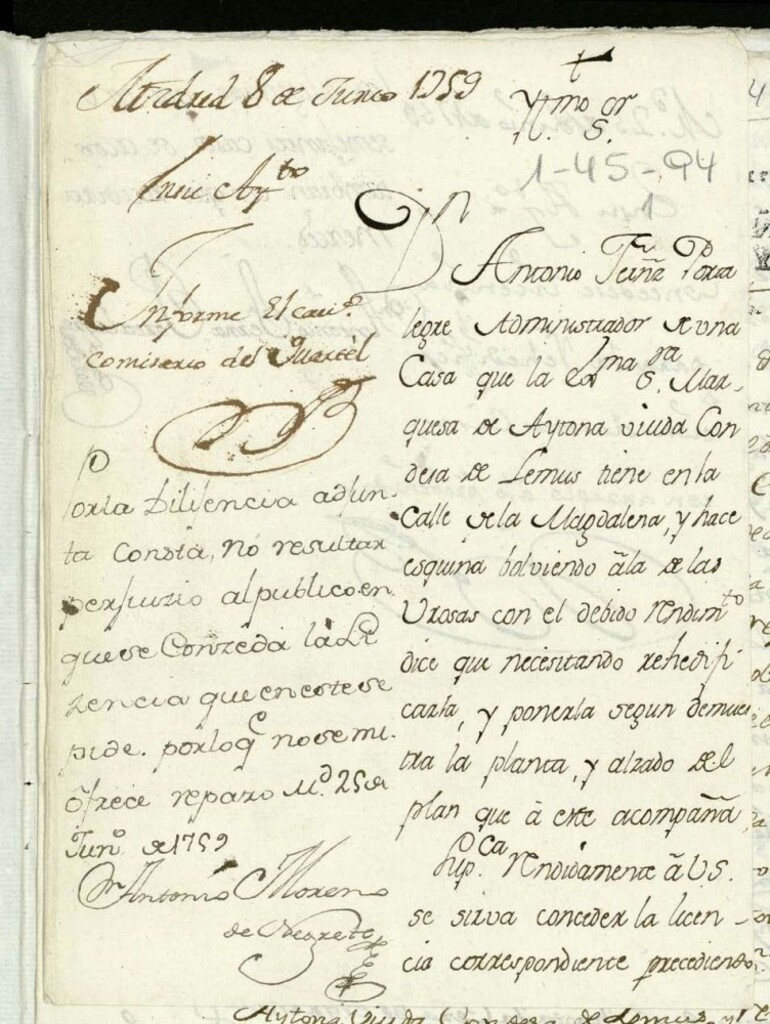 Madrid 8 de Junio 1759
Ytmo Sr
S.
1-45-94
1
En su Aytto
Informe El cavo.
comisario del Quartel
Por la Dilixencia adjun-
ta Consta, no resultar
perjuizio al publico en
que se Conzeda la Li
zencia que en este se
pide. por lo q no se me
ofrece reparo Md. 25 de
Juno. de 1759
Dn Antonio Moreno
de Negrete
Dn
Antonio Ferñz Porta
legre Administrador de una
Casa que la Exma Sra Mar-
quesa de Aytona viuda Con
desa de Lemus tiene en la
Calle de la Magdalena, y hace
esquina bolviendo àla de las
Urosas con el debido rendimto
dice que necesitando rehedifi
carla, y ponerla segun demues
tra la planta, y alzado del
plan que à este acompaña
Supca. rendidamente à VS.
se sirva conceder la licen-
cia correspondiente precediendo
Aytona Viuda Condesa de Lemus, y